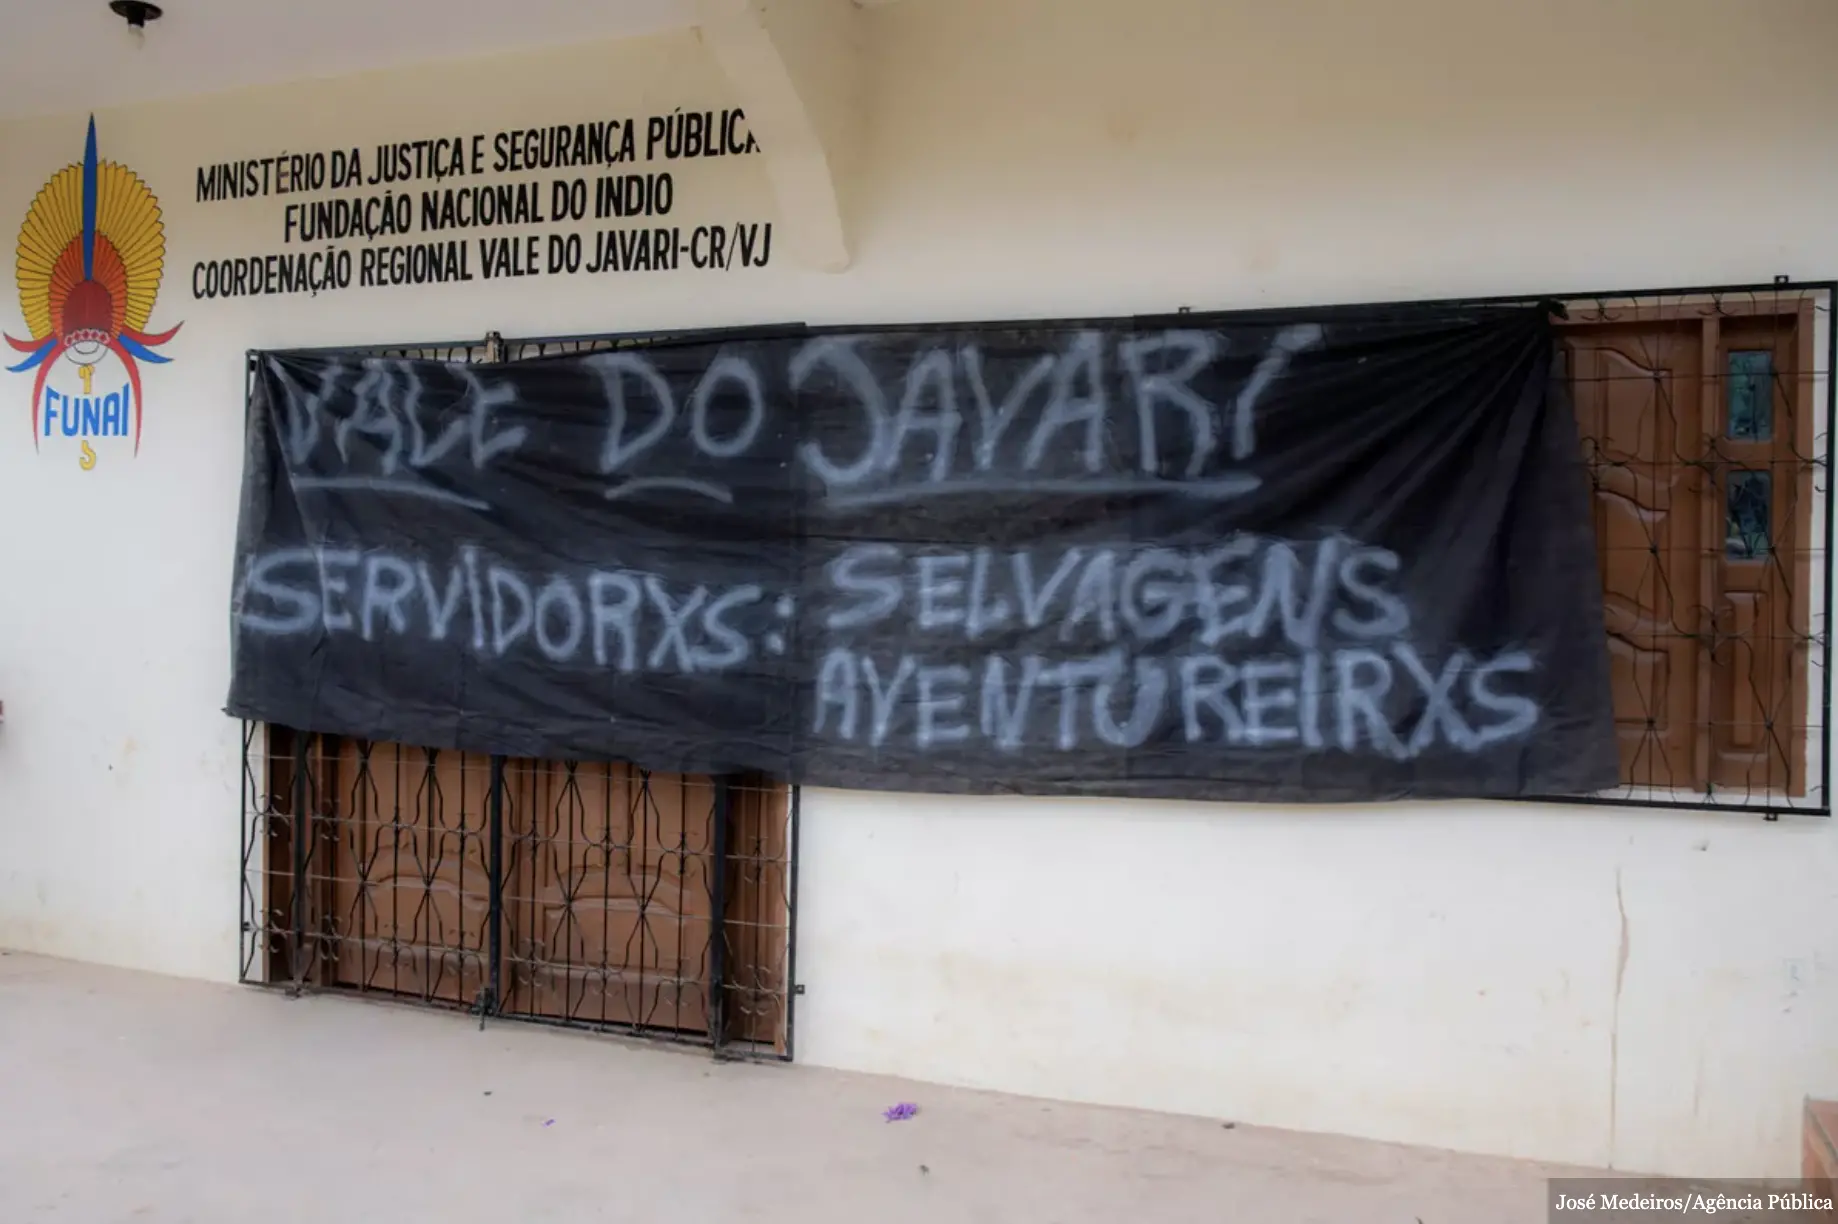 MINISTÉRIO DA JUSTIÇA E SEGURANÇA PÚBLICA
FUNDAÇÃO NACIONAL DO INDIO
COORDENAÇÃO REGIONAL VALE DO JAVARI-CR/VJ
FUNAI
VALE DO JAVARÍ
SERVIDORXS: SELVAGENS
AVENTUREIRXS
José Medeiros/Agência Pública